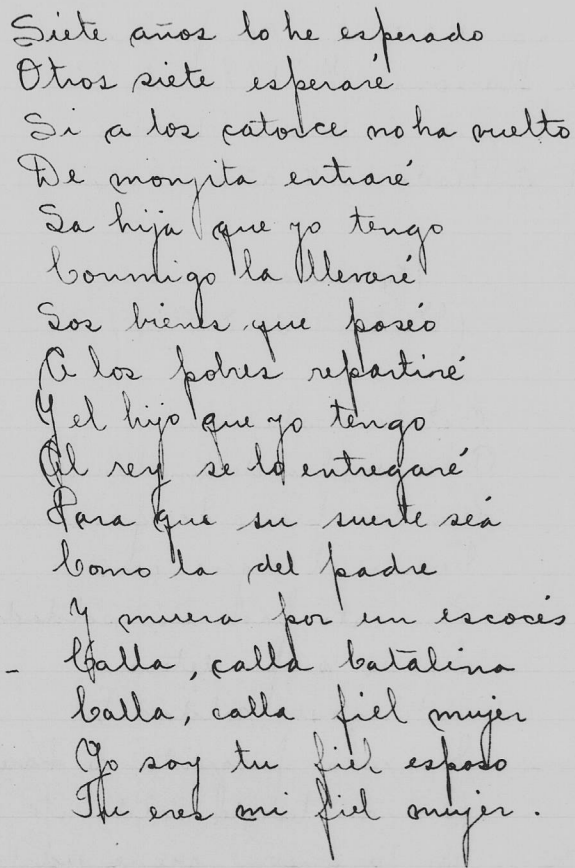 Siete años lo he esperado
Otros siete esperaré
Si a los catorce no ha vuelto
De monjita entraré
La hija que yo tengo
Conmigo la llevaré
Los bienes que poseó
A los pobres repartiré
Y el hijo que yo tengo
Al rey se lo entregaré
Para que su suerte seá
Como la del padre
Y muera por un escocés
- Calla, calla Catalina
Calla, calla fiel mujer
Yo soy tu fiel esposo
Tu eres mi fiel mujer.